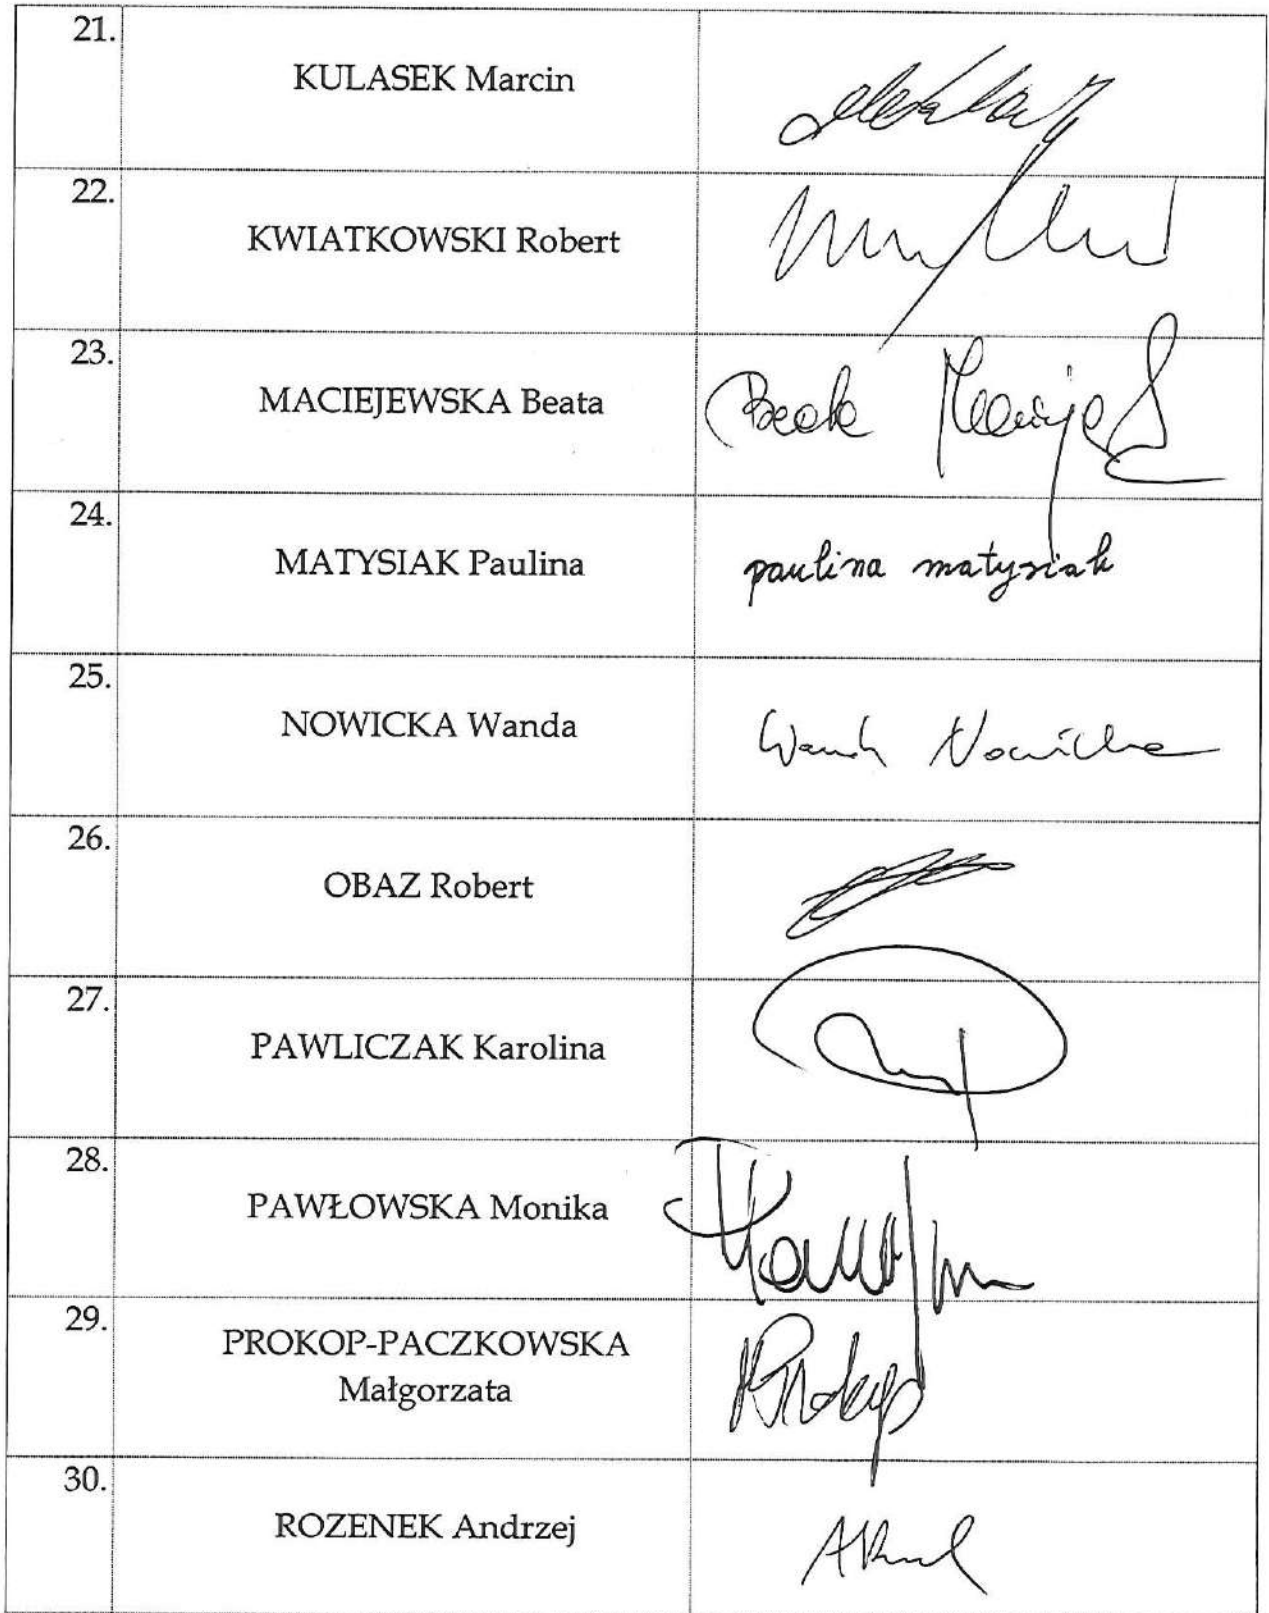 21.
KULASEK Marcin
22.
KWIATKOWSKI Robert
23.
MACIEJEWSKA Beata
Beata
24.
MATYSIAK Paulina
paulina matysiak
25.
NOWICKA Wanda
Wanda Nowicka
26.
OBAZ Robert
27.
PAWLICZAK Karolina
28.
PAWŁOWSKA Monika
29.
PROKOP-PACZKOWSKA
Małgorzata
30.
ROZENEK Andrzej